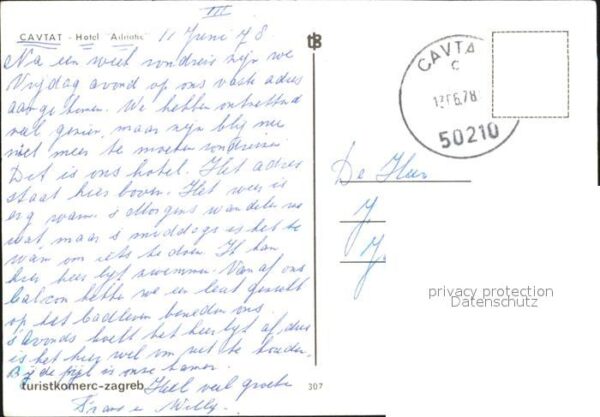 III
CAVTAT - Hotel "Adriatic" 11 Juni 78
Na een week rondreis zijn we
Vrijdag avond op ons vaste adres
aangekomen. We hebben ontzettend
veel gezien, maar zijn blij nu
niet meer te moeten rondreizen
Dit is ons hotel. Het adres
staat hier boven. Het weer is
erg warm. 's Morgens wandelen we
wat, maar 's middags is het te
warm om iets te doen. Ik kan
hier heerlijk zwemmen. Vanaf ons
balcon hebben we een leuk gezicht
op het badleven beneden ons.
's avonds koelt het heerlijk af, dus
is het hier wel om uit te houden.
Bij de pijl is onze kamer.
Heel veel groeten
Frans en Willy.
turistkomerc-zagreb
307
tkB
CAVTA
C
13 6.78
50210
De Heer
J.
J.
privacy protection
Datenschutz